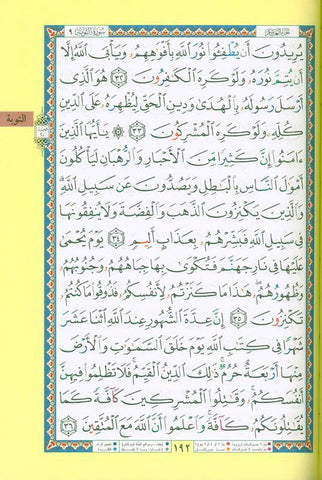 سورة التوبة ٩
يُرِيدُونَ أَن يُطْفِـُٔوا۟ نُورَ ٱللَّهِ بِأَفْوَٰهِهِمْ وَيَأْبَى ٱللَّهُ إِلَّآ
أَن يُتِمَّ نُورَهُۥ وَلَوْ كَرِهَ ٱلْكَـٰفِرُونَ ٣٢ هُوَ ٱلَّذِىٓ
أَرْسَلَ رَسُولَهُۥ بِٱلْهُدَىٰ وَدِينِ ٱلْحَقِّ لِيُظْهِرَهُۥ عَلَى ٱلدِّينِ
كُلِّهِۦ وَلَوْ كَرِهَ ٱلْمُشْرِكُونَ ٣٣ ۞ يَـٰٓأَيُّهَا ٱلَّذِينَ
ءَامَنُوٓا۟ إِنَّ كَثِيرًا مِّنَ ٱلْأَحْبَارِ وَٱلرُّهْبَانِ لَيَأْكُلُونَ
أَمْوَٰلَ ٱلنَّاسِ بِٱلْبَـٰطِلِ وَيَصُدُّونَ عَن سَبِيلِ ٱللَّهِ ۗ
وَٱلَّذِينَ يَكْنِزُونَ ٱلذَّهَبَ وَٱلْفِضَّةَ وَلَا يُنفِقُونَهَا
فِى سَبِيلِ ٱللَّهِ فَبَشِّرْهُم بِعَذَابٍ أَلِيمٍ ٣٤ يَوْمَ يُحْمَىٰ
عَلَيْهَا فِى نَارِ جَهَنَّمَ فَتُكْوَىٰ بِهَا جِبَاهُهُمْ وَجُنُوبُهُمْ
وَظُهُورُهُمْ ۖ هَـٰذَا مَا كَنَزْتُمْ لِأَنفُسِكُمْ فَذُوقُوا۟ مَا كُنتُمْ
تَكْنِزُونَ ٣٥ إِنَّ عِدَّةَ ٱلشُّهُورِ عِندَ ٱللَّهِ ٱثْنَا عَشَرَ
شَهْرًا فِى كِتَـٰبِ ٱللَّهِ يَوْمَ خَلَقَ ٱلسَّمَـٰوَٰتِ وَٱلْأَرْضَ
مِنْهَآ أَرْبَعَةٌ حُرُمٌ ۚ ذَٰلِكَ ٱلدِّينُ ٱلْقَيِّمُ ۚ فَلَا تَظْلِمُوا۟ فِيهِنَّ
أَنفُسَكُمْ ۚ وَقَـٰتِلُوا۟ ٱلْمُشْرِكِينَ كَآفَّةً كَمَا
يُقَـٰتِلُونَكُمْ كَآفَّةً ۚ وَٱعْلَمُوٓا۟ أَنَّ ٱللَّهَ مَعَ ٱلْمُتَّقِينَ ٣٦
التوبة
١٩٢